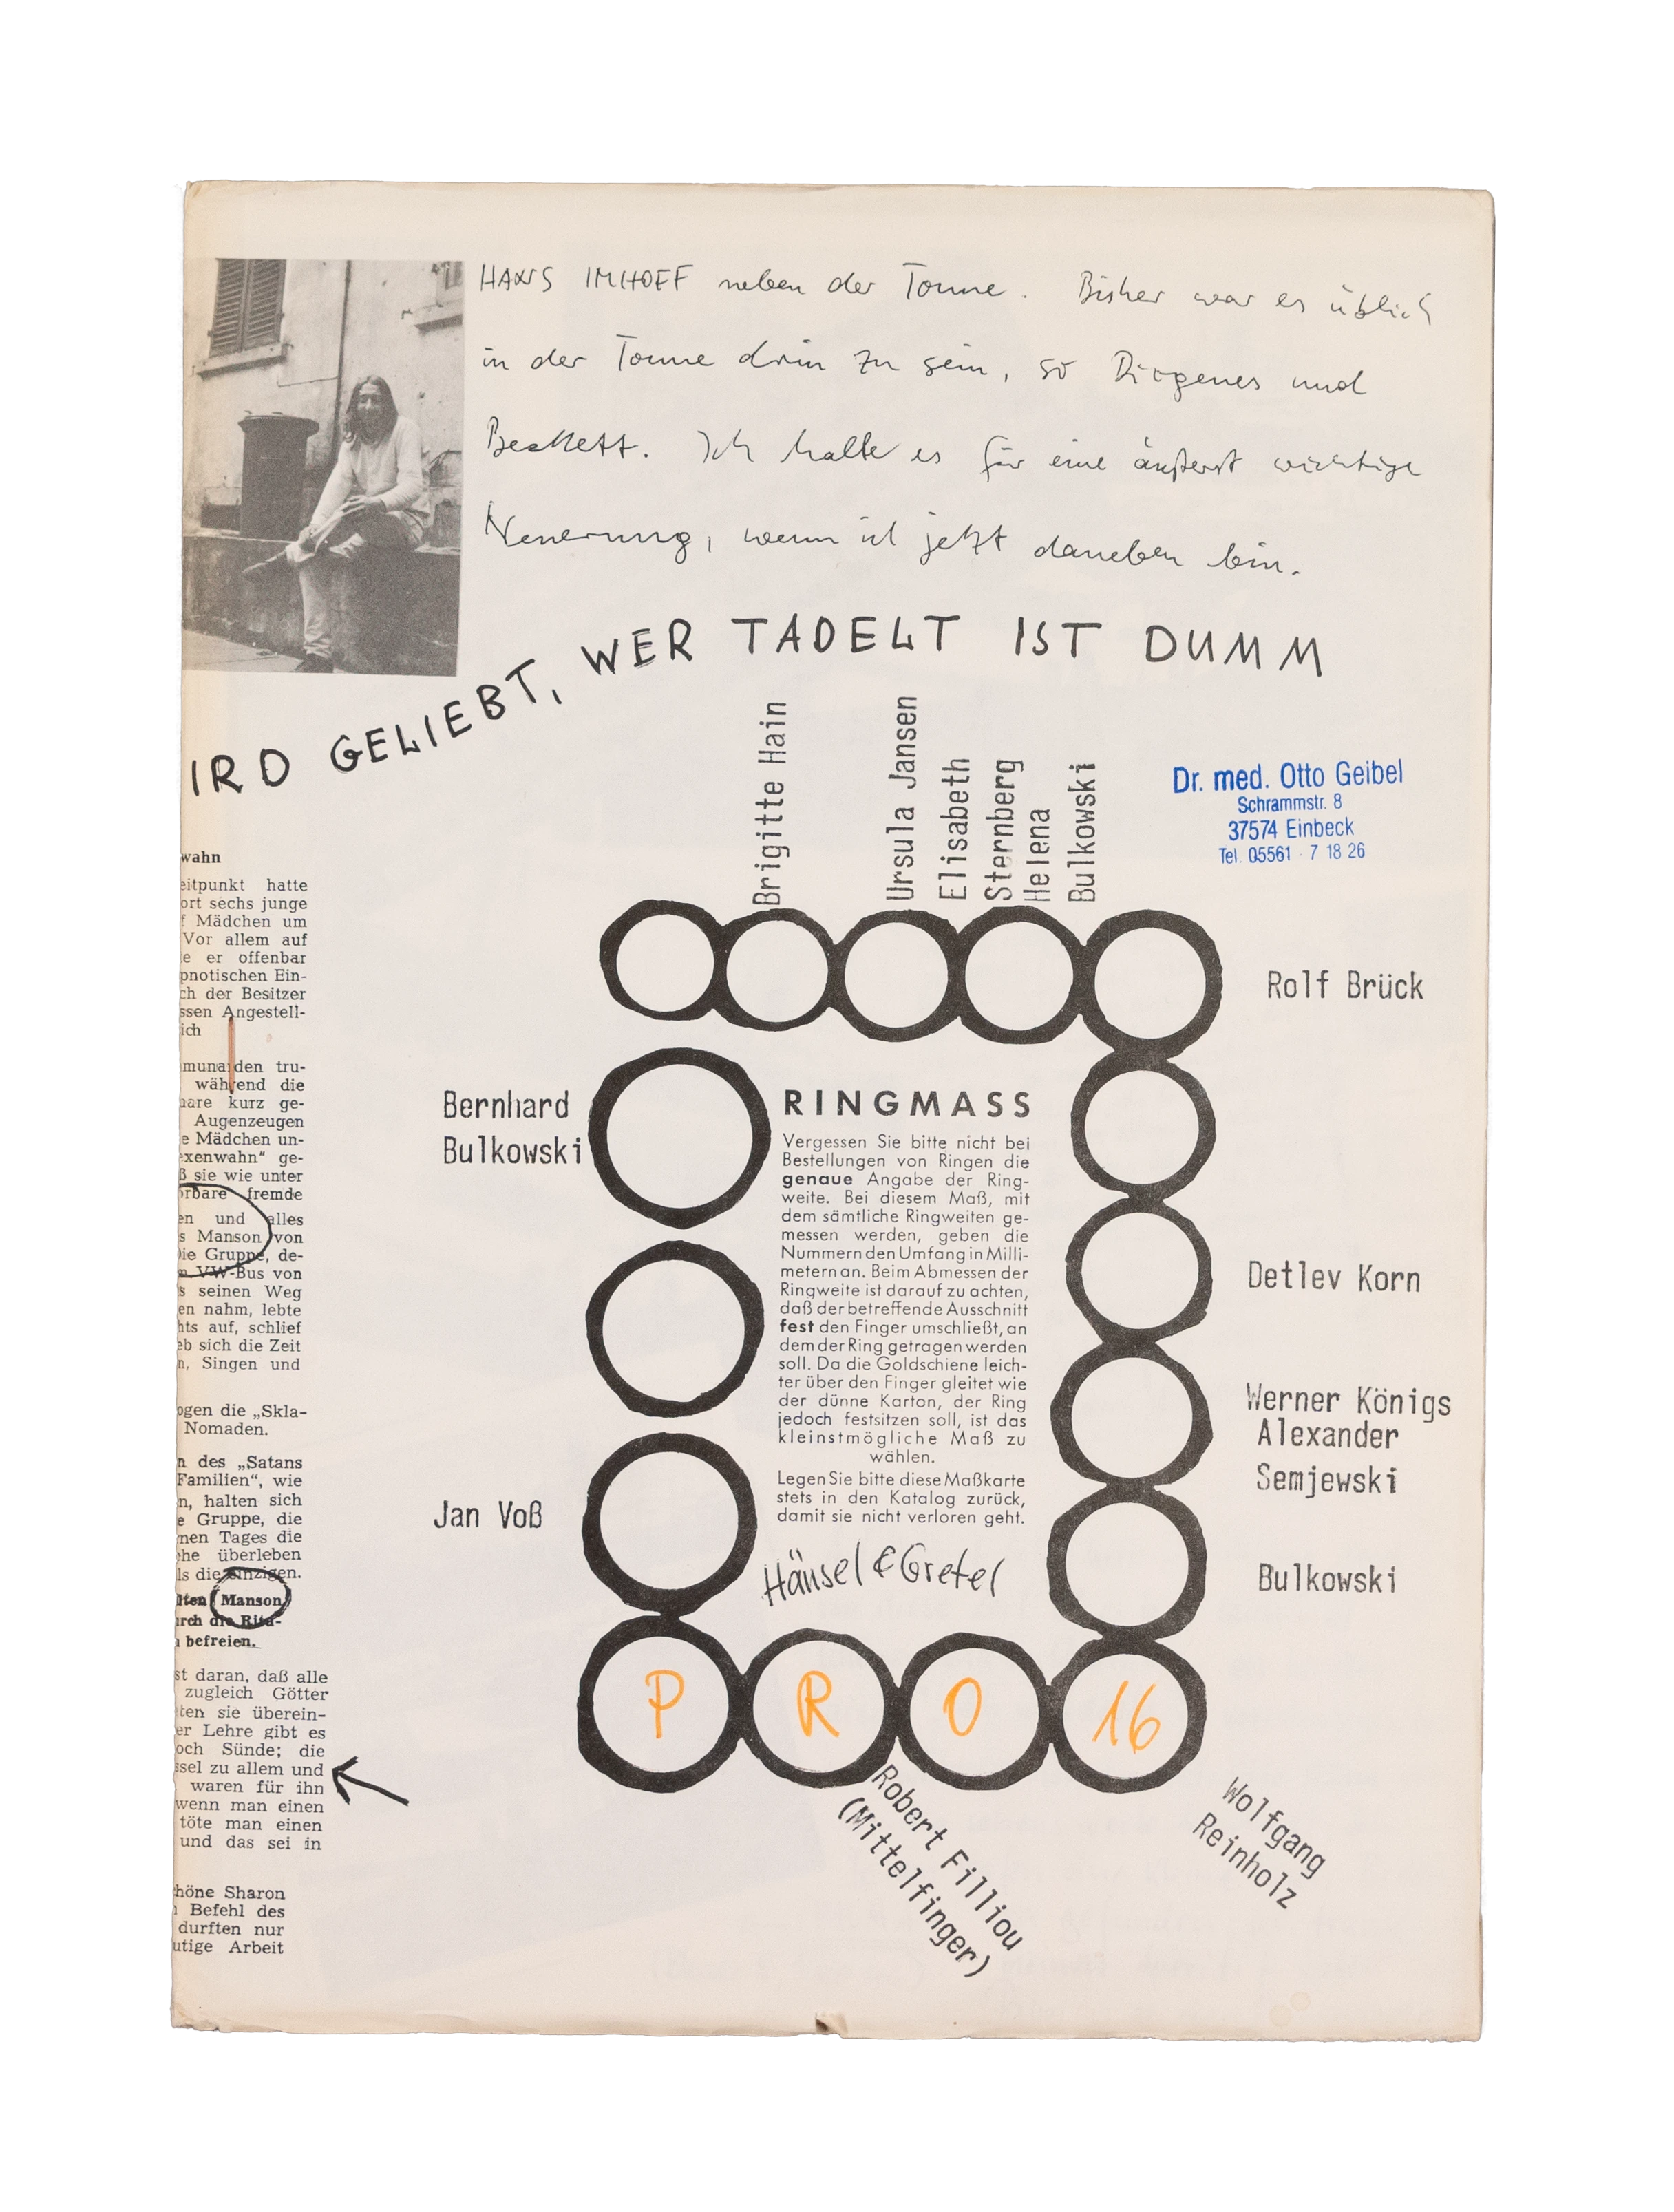 HANS IMHOFF neben der Tonne. Bisher war es üblich
in der Tonne drin zu sein, so Diogenes und
Beckett. Ich halte es für eine äußerst wichtige
Neuerung, wenn ich jetzt daneben bin.
IRD GELIEBT, WER TADELT IST DUMM
Brigitte Hain
Ursula Jansen
Elisabeth
Sternberg
Helena
Bulkowski
Dr. med. Otto Geibel
Schrammstr. 8
37574 Einbeck
Tel. 05561 - 7 18 26
Rolf Brück
Bernhard
Bulkowski
Detlev Korn
Werner Königs
Alexander
Semjewski
Jan Voß
Bulkowski
RINGMASS
Vergessen Sie bitte nicht bei
Bestellungen von Ringen die
genaue Angabe der Ring-
weite. Bei diesem Maß, mit
dem sämtliche Ringweiten ge-
messen werden, geben die
Nummern den Umfang in Milli-
metern an. Beim Abmessen der
Ringweite ist darauf zu achten,
daß der betreffende Ausschnitt
fest den Finger umschließt, an
dem der Ring getragen werden
soll. Da die Goldschiene leich-
ter über den Finger gleitet wie
der dünne Karton, der Ring
jedoch festsitzen soll, ist das
kleinstmögliche Maß zu
wählen.
Legen Sie bitte diese Maßkarte
stets in den Katalog zurück,
damit sie nicht verloren geht.
Hänsel & Gretel
P R O 16
Robert Filliou
(Mittelfinger)
Wolfgang
Reinholz
wahn
eitpunkt hatte
ort sechs junge
f Mädchen um
Vor allem auf
e er offenbar
pnotischen Ein-
ch der Besitzer
ssen Angestell-
ich
munarden tru-
während die
aare kurz ge-
Augenzeugen
e Mädchen un-
exenwahn" ge-
ß sie wie unter
orbare fremde
en und alles
s Manson von
Die Gruppe, de-
m VW-Bus von
s seinen Weg
en nahm, lebte
hts auf, schlief
eb sich die Zeit
n, Singen und
ogen die „Skla-
Nomaden.
n des „Satans
Familien", wie
n, halten sich
e Gruppe, die
nen Tages die
che überleben
ls die einzigen.
lten Manson
urch die Ritu-
befreien.
st daran, daß alle
zugleich Götter
ten sie überein-
er Lehre gibt es
och Sünde; die
ssel zu allem und
waren für ihn
wenn man einen
töte man einen
und das sei in
höne Sharon
Befehl des
durften nur
utige Arbeit